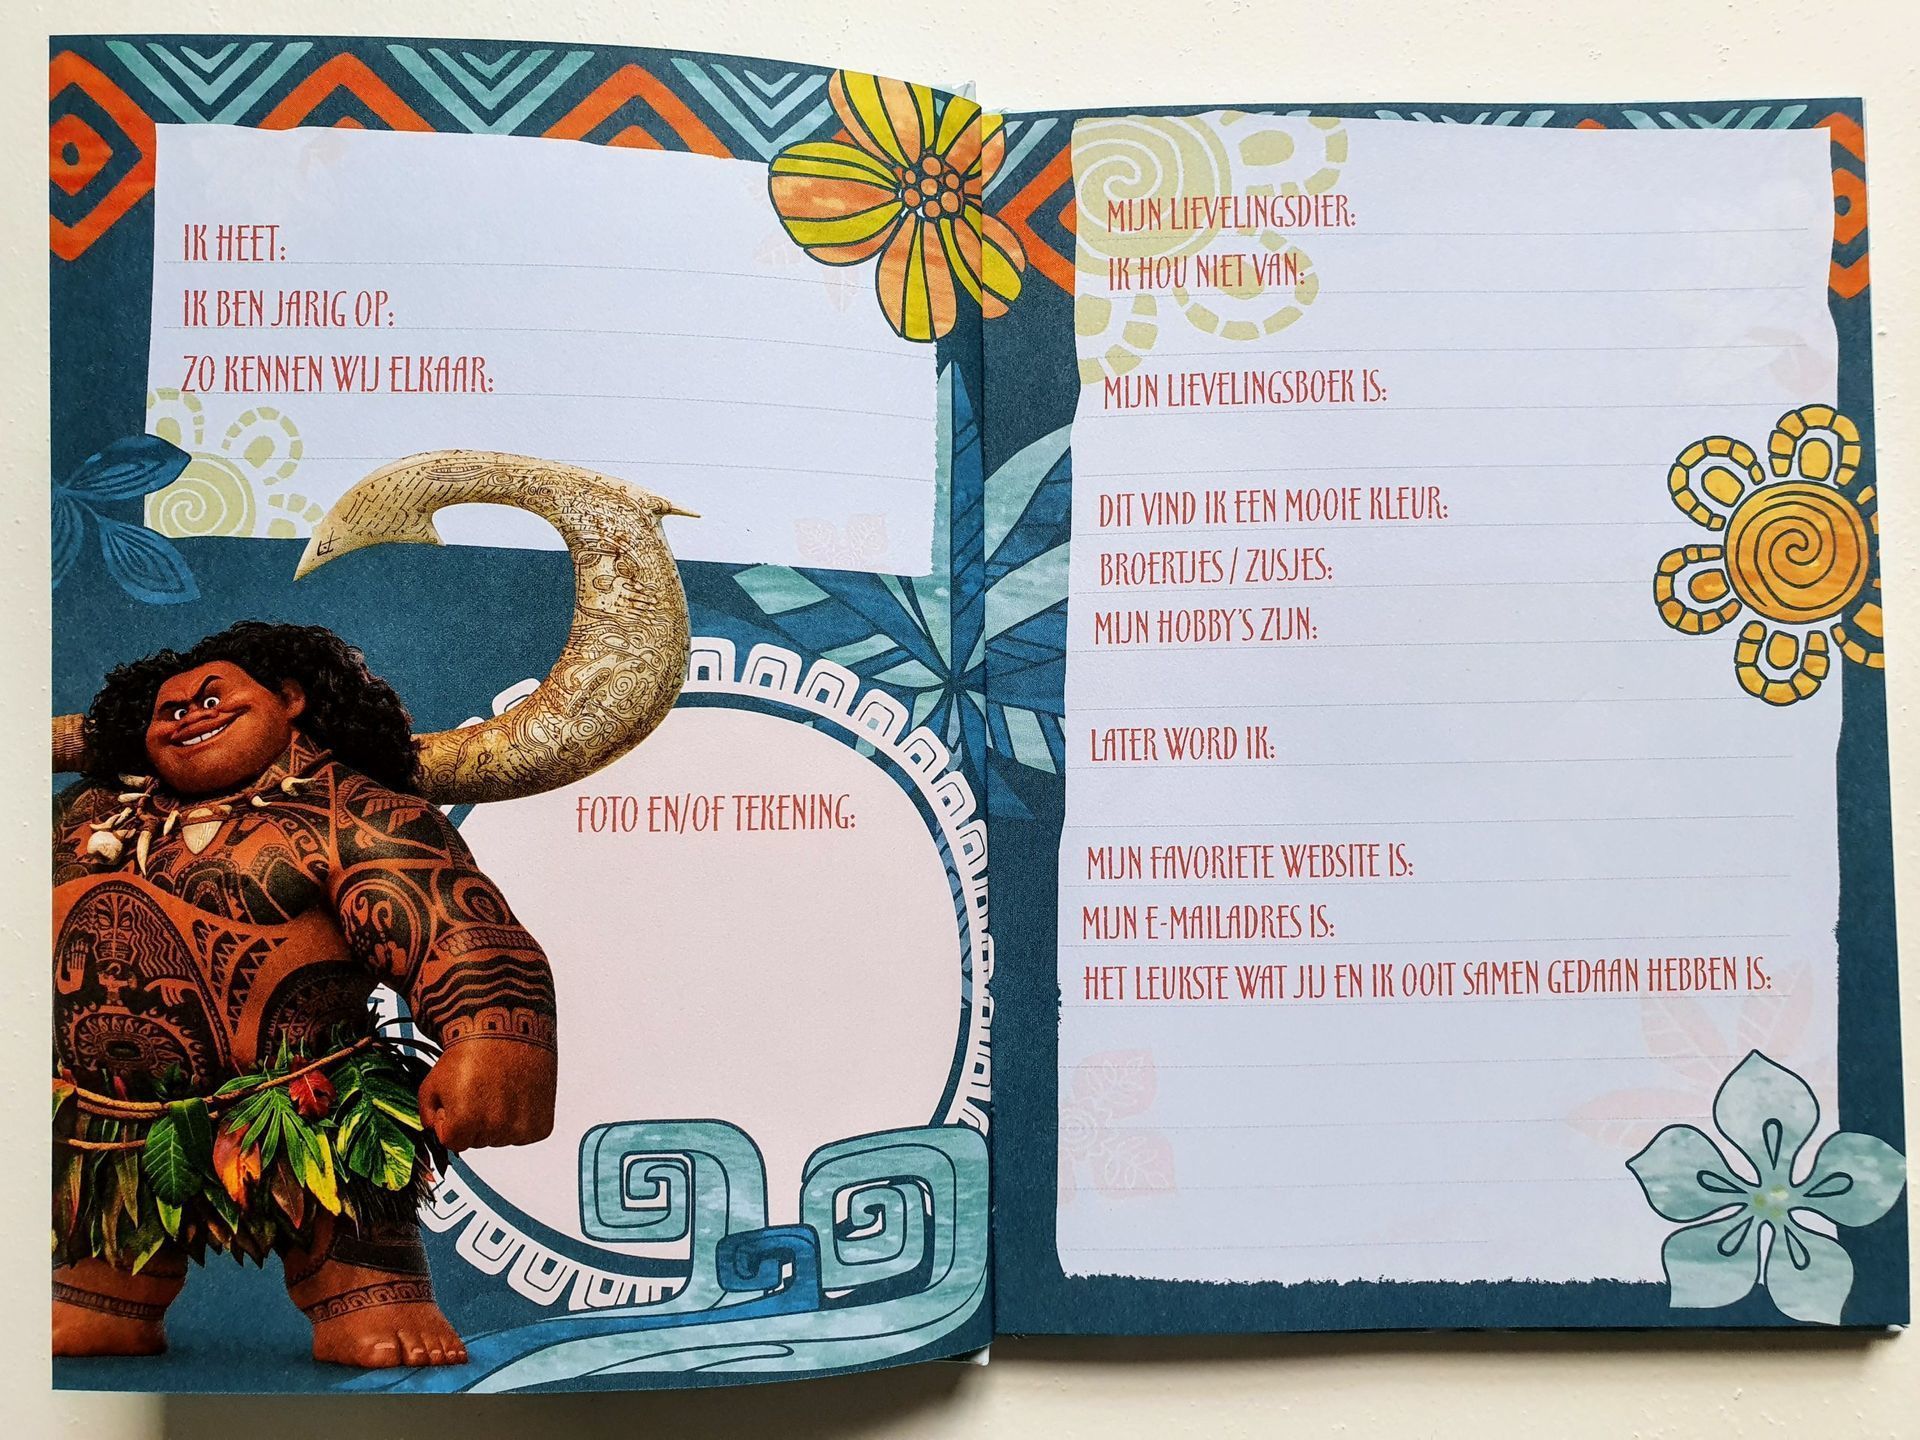 IK HEET:
IK BEN JARIG OP:
ZO KENNEN WIJ ELKAAR:
FOTO EN/OF TEKENING:
MIJN LIEVELINGSDIER:
IK HOU NIET VAN:
MIJN LIEVELINGSBOEK IS:
DIT VIND IK EEN MOOIE KLEUR:
BROERTJES / ZUSJES:
MIJN HOBBY'S ZIJN:
LATER WORD IK:
MIJN FAVORIETE WEBSITE IS:
MIJN E-MAILADRES IS:
HET LEUKSTE WAT JIJ EN IK OOIT SAMEN GEDAAN HEBBEN IS: